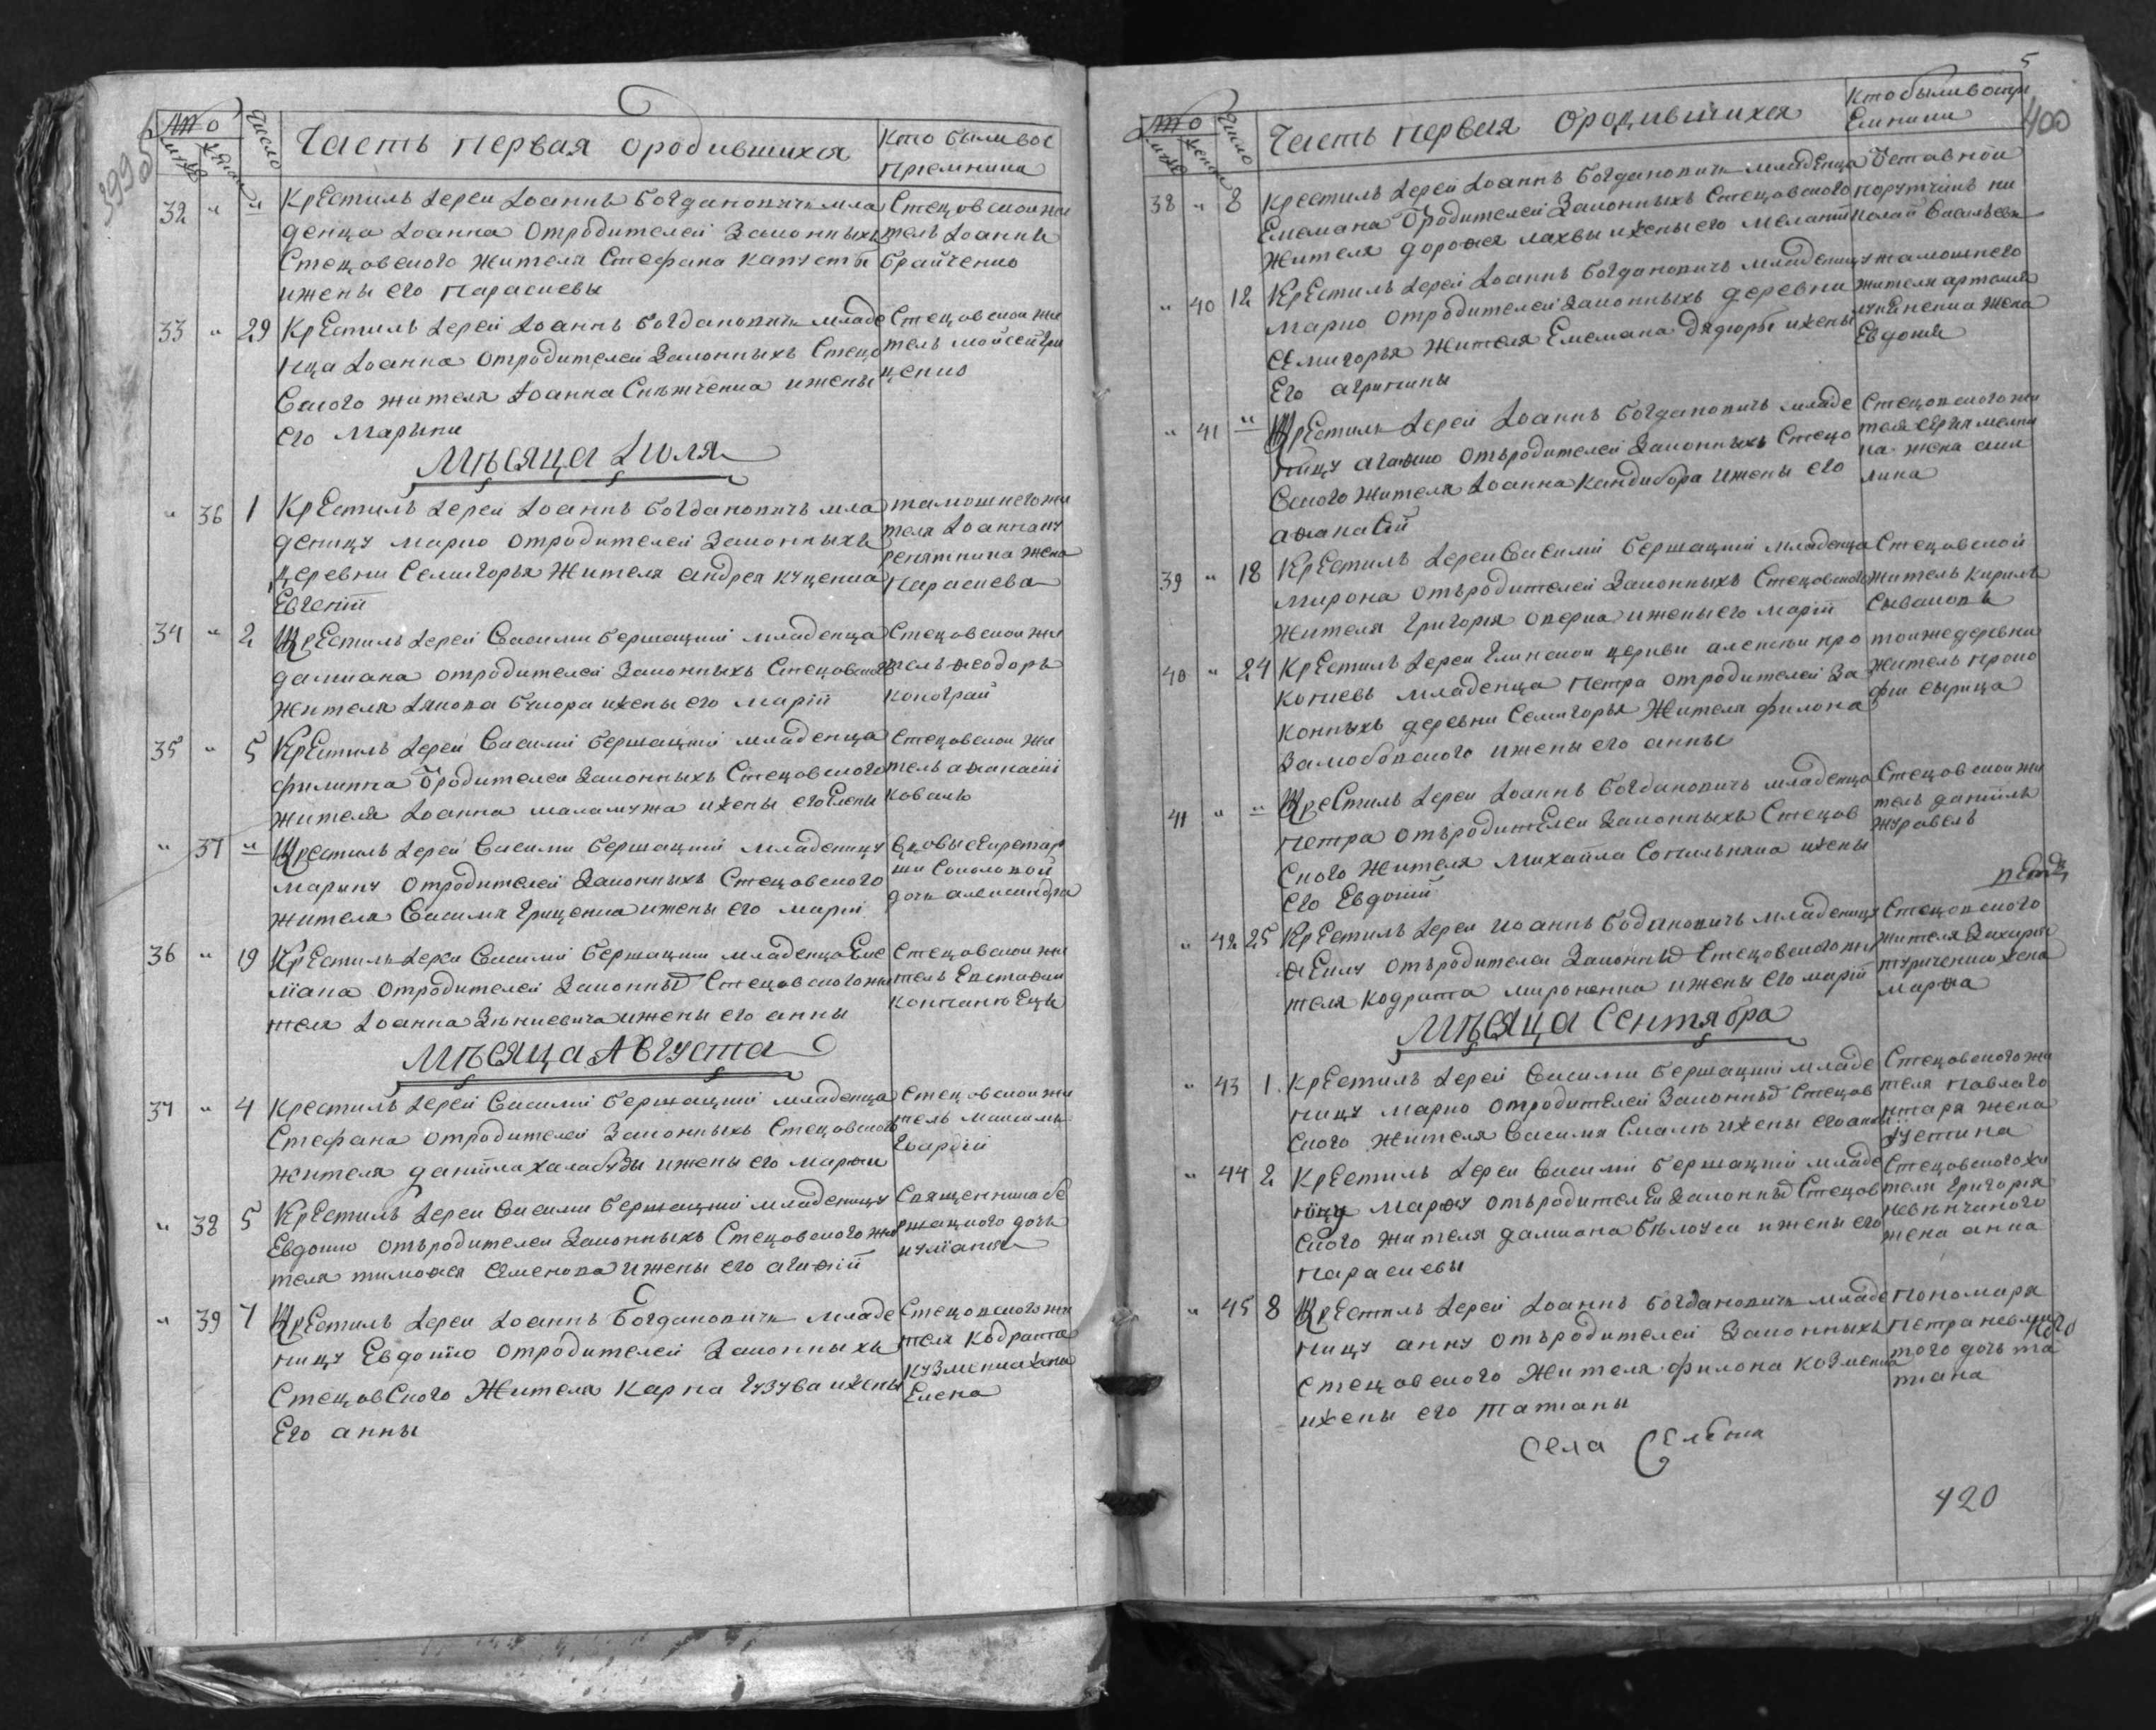 399об
Кто
мужеска
женска
Число
Часть первая ородившихся
Кто были вос
приемники
32 " " Крестилъ Iерей Iоаннъ Богдановичъ мла
денца Iоанна отродителей Законныхъ
Стецовского жителя Стефана Капусты
ижены его Парасковы
Стецовскои жи
тель Iоаннъ
Брайченко
33 " 29 Крестилъ Iерей Iоаннъ Богдановичъ младе
нца Iоанна отродителей Законныхъ Стецо
вского жителя Iоанна Снѣжченка ижены
его Марыни
Стецовскои жи
тель Мойсей Гри
ценко
Мѣсяца Iюля
" 36 1 Крестилъ Iерей Iоаннъ Богдановичъ мла
деницу Марию отродителей Законныхъ
деревни Семигорья Жителя Андрея Куценка
Евгенiи
тамошнего жи
теля Iоанна
жена
Параскева
34 " 2 Крестилъ Iерей Василий Бершацкий младенца
Дамиана отродителей Законныхъ Стецовского
жителя Iякова ижены его Марiи
Стецовскои жи
тель Ѳеодоръ
Коноград
35 " 5 Крестилъ Iерей Василий Бершацкий младенца
Филиппа отродителей Законныхъ Стецовского
жителя Iоанна Маламужа ижены его Елены
Стецовскои жи
тель Аѳанасiй
Коваль
" 37 " Крестилъ Iерей Василий Бершацкий младеницу
Марину отродителей Законныхъ Стецовского
жителя Василия Гриценка ижены его Марiи
Вдовы секретар
ши Соколовой
дочь Александра
36 " 19 Крестилъ Iерей Василий Бершацкий младенца Еме
лiана отродителей Законныхъ Стецовского жи
теля Iоанна Зѣнкевича ижены его Анны
Стецовскои жи
тель Евстаѳий
Компанѣецъ
Мѣсяца Августа
37 " 4 Крестилъ Iерей Василий Бершацкий младенца
Стефана отродителей Законныхъ Стецовского
жителя Данiила Халабуды ижены его Марѳы
Стецовскои жи
тель Максимъ
Гвардiй
" 38 5 Крестилъ Iерей Василий Бершацкий младеницу
Евдокию отъродителей Законныхъ Стецовского жи
теля Тимоѳея Семенова ижены его Агаѳiи
Священника Бе
ршацкого дочь
Iулiанiя
" 39 7 Крестилъ Iерей Iоаннъ Богдановичъ младе
ницу Евдокiю отродителей Законныхъ
Стецовского Жителя Карпа Гузува ижены
Его Анны
Стецовского жи
теля Кодрата
Кузменка жена
Елена
5
400
Кто
мужеска
женска
Число
Часть первая ородившихся
Кто были востри
емники
38 " 8 Крестилъ Iерей Iоаннъ Богдановичъ младенца
Емемана отродителей Законныхъ Стецовского
Жителя Дороѳея Махвы ижены его Меланiи
отставной
порутчикъ Ни
колай Васильевъ
" 40 12 Крестилъ Iерей Iоаннъ Богдановичъ младеницу
Марию отродителей Законныхъ деревни
Семигорья Жителя Емемана Дядюры ижены
Его Агрипины
тамошнего
жителя
жена
Евдокия
" 41 " Крестилъ Iерей Iоаннъ Богдановичъ младе
ницу Агаѳию отъродителей Законныхъ Стецо
вского Жителя Iоанна Кандибора ижены его
Аѳанасiи
Стецовского жи
теля Сергия Мелни
ка жена Аки
лина
39 " 18 Крестилъ Iерей Василий Бершацкий младенца
Мирона отъродителей Законныхъ Стецовского
Жителя Григория ижены его Марiи
Стецовской
житель Кирилъ
40 " 24 Крестилъ Iерей Глинской церкви Алексѣй Про
копиевъ младенца Петра отродителей За
конныхъ деревни Семигорья Жителя Филона
ижены его Анны
тоижедеревни
Житель Проко
фий Сырица
41 " " Крестилъ Iерей Iоаннъ Богдановичъ младенца
Петра отъродителей Законныхъ Стецов
ского Жителя Михайла Сопильняка ижены
его Евдокiи
Стецовскои жи
тель Данiилъ
Журавель
" 42 25 Крестилъ Iерей Иоаннъ Бодановичъ младеницу
Ѳеклу отъродителей Законныхъ Стецовского жи
теля Кодрата Мироненка ижены его Марiи
Стецовского
жителя Захарiи
жена
Марѳа
Мѣсяца Сентября
" 43 1 Крестилъ Iерей Василий Бершацкий младе
ницу Марию отродителей Законныхъ Стецов
ского Жителя Василия ижены его Анны
Стецовского жи
теля Павла Го
нтаря жена
Устина
" 44 2 Крестилъ Iерей Василий Бершацкий младе
ницу Марѳу отъродителей Законныхъ Стецов
ского жителя Дамиана Бѣлоуса ижены его
Парасковы
Стецовского жи
теля Григория
Невѣнчаного
жена Анна
" 45 8 Крестилъ Iерей Iоаннъ Богдановичъ младе
ницу Анну отъродителей Законныхъ
Стецовского Жителя Филона Козменка
ижены его Татианы
пономаря
Петра
дочь Та
тиана
Села
420